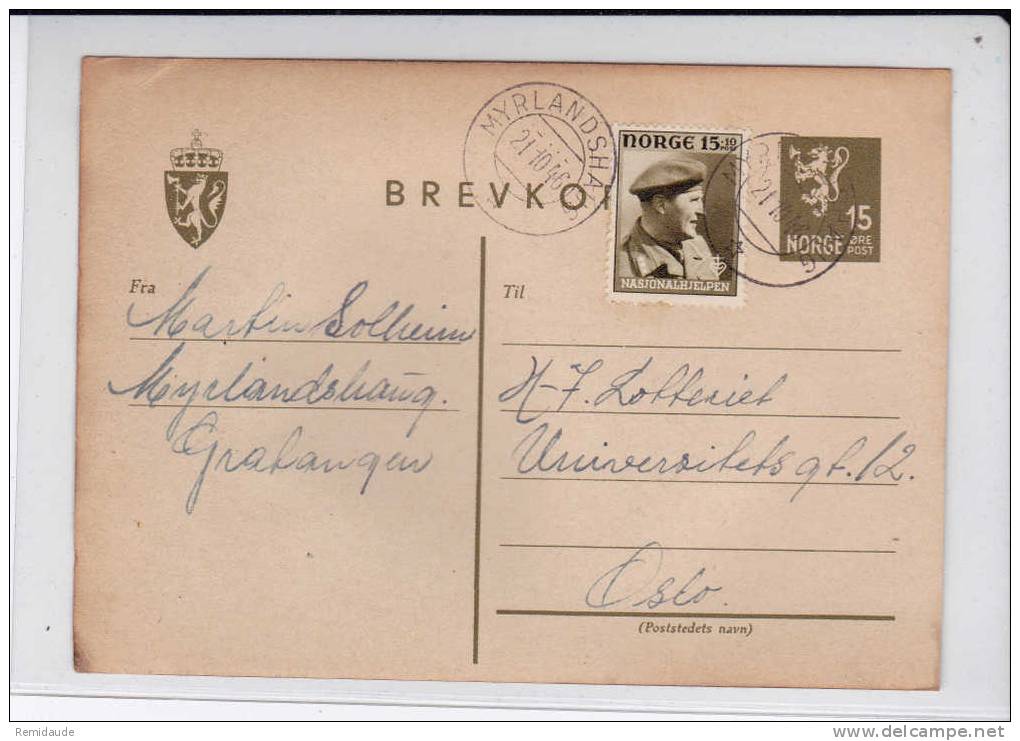 MYRLANDSHAUG
21.10.46
NORGE 15+10
NASJONALHJELPEN
15
NORGE ØRE
POST
BREVKOR
Fra
Martin Solheim
Myrlandshaug.
Gratangen
Til
H-7. Lotteriet
Universitets gt. 12.
Oslo.
(Poststedets navn)
Remidaude
www.delcampe.net